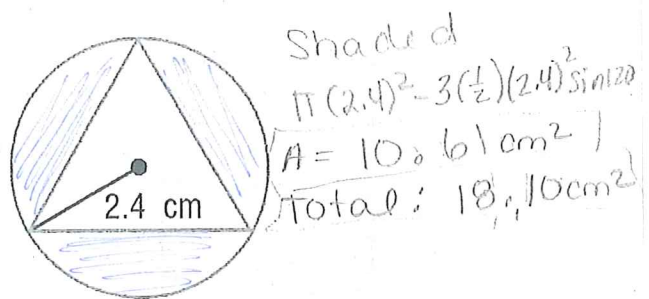 Shaded
π(2.4)²-3(½)(2.4)² sin120
A = 10.61cm²
Total: 18.10cm²
2.4 cm